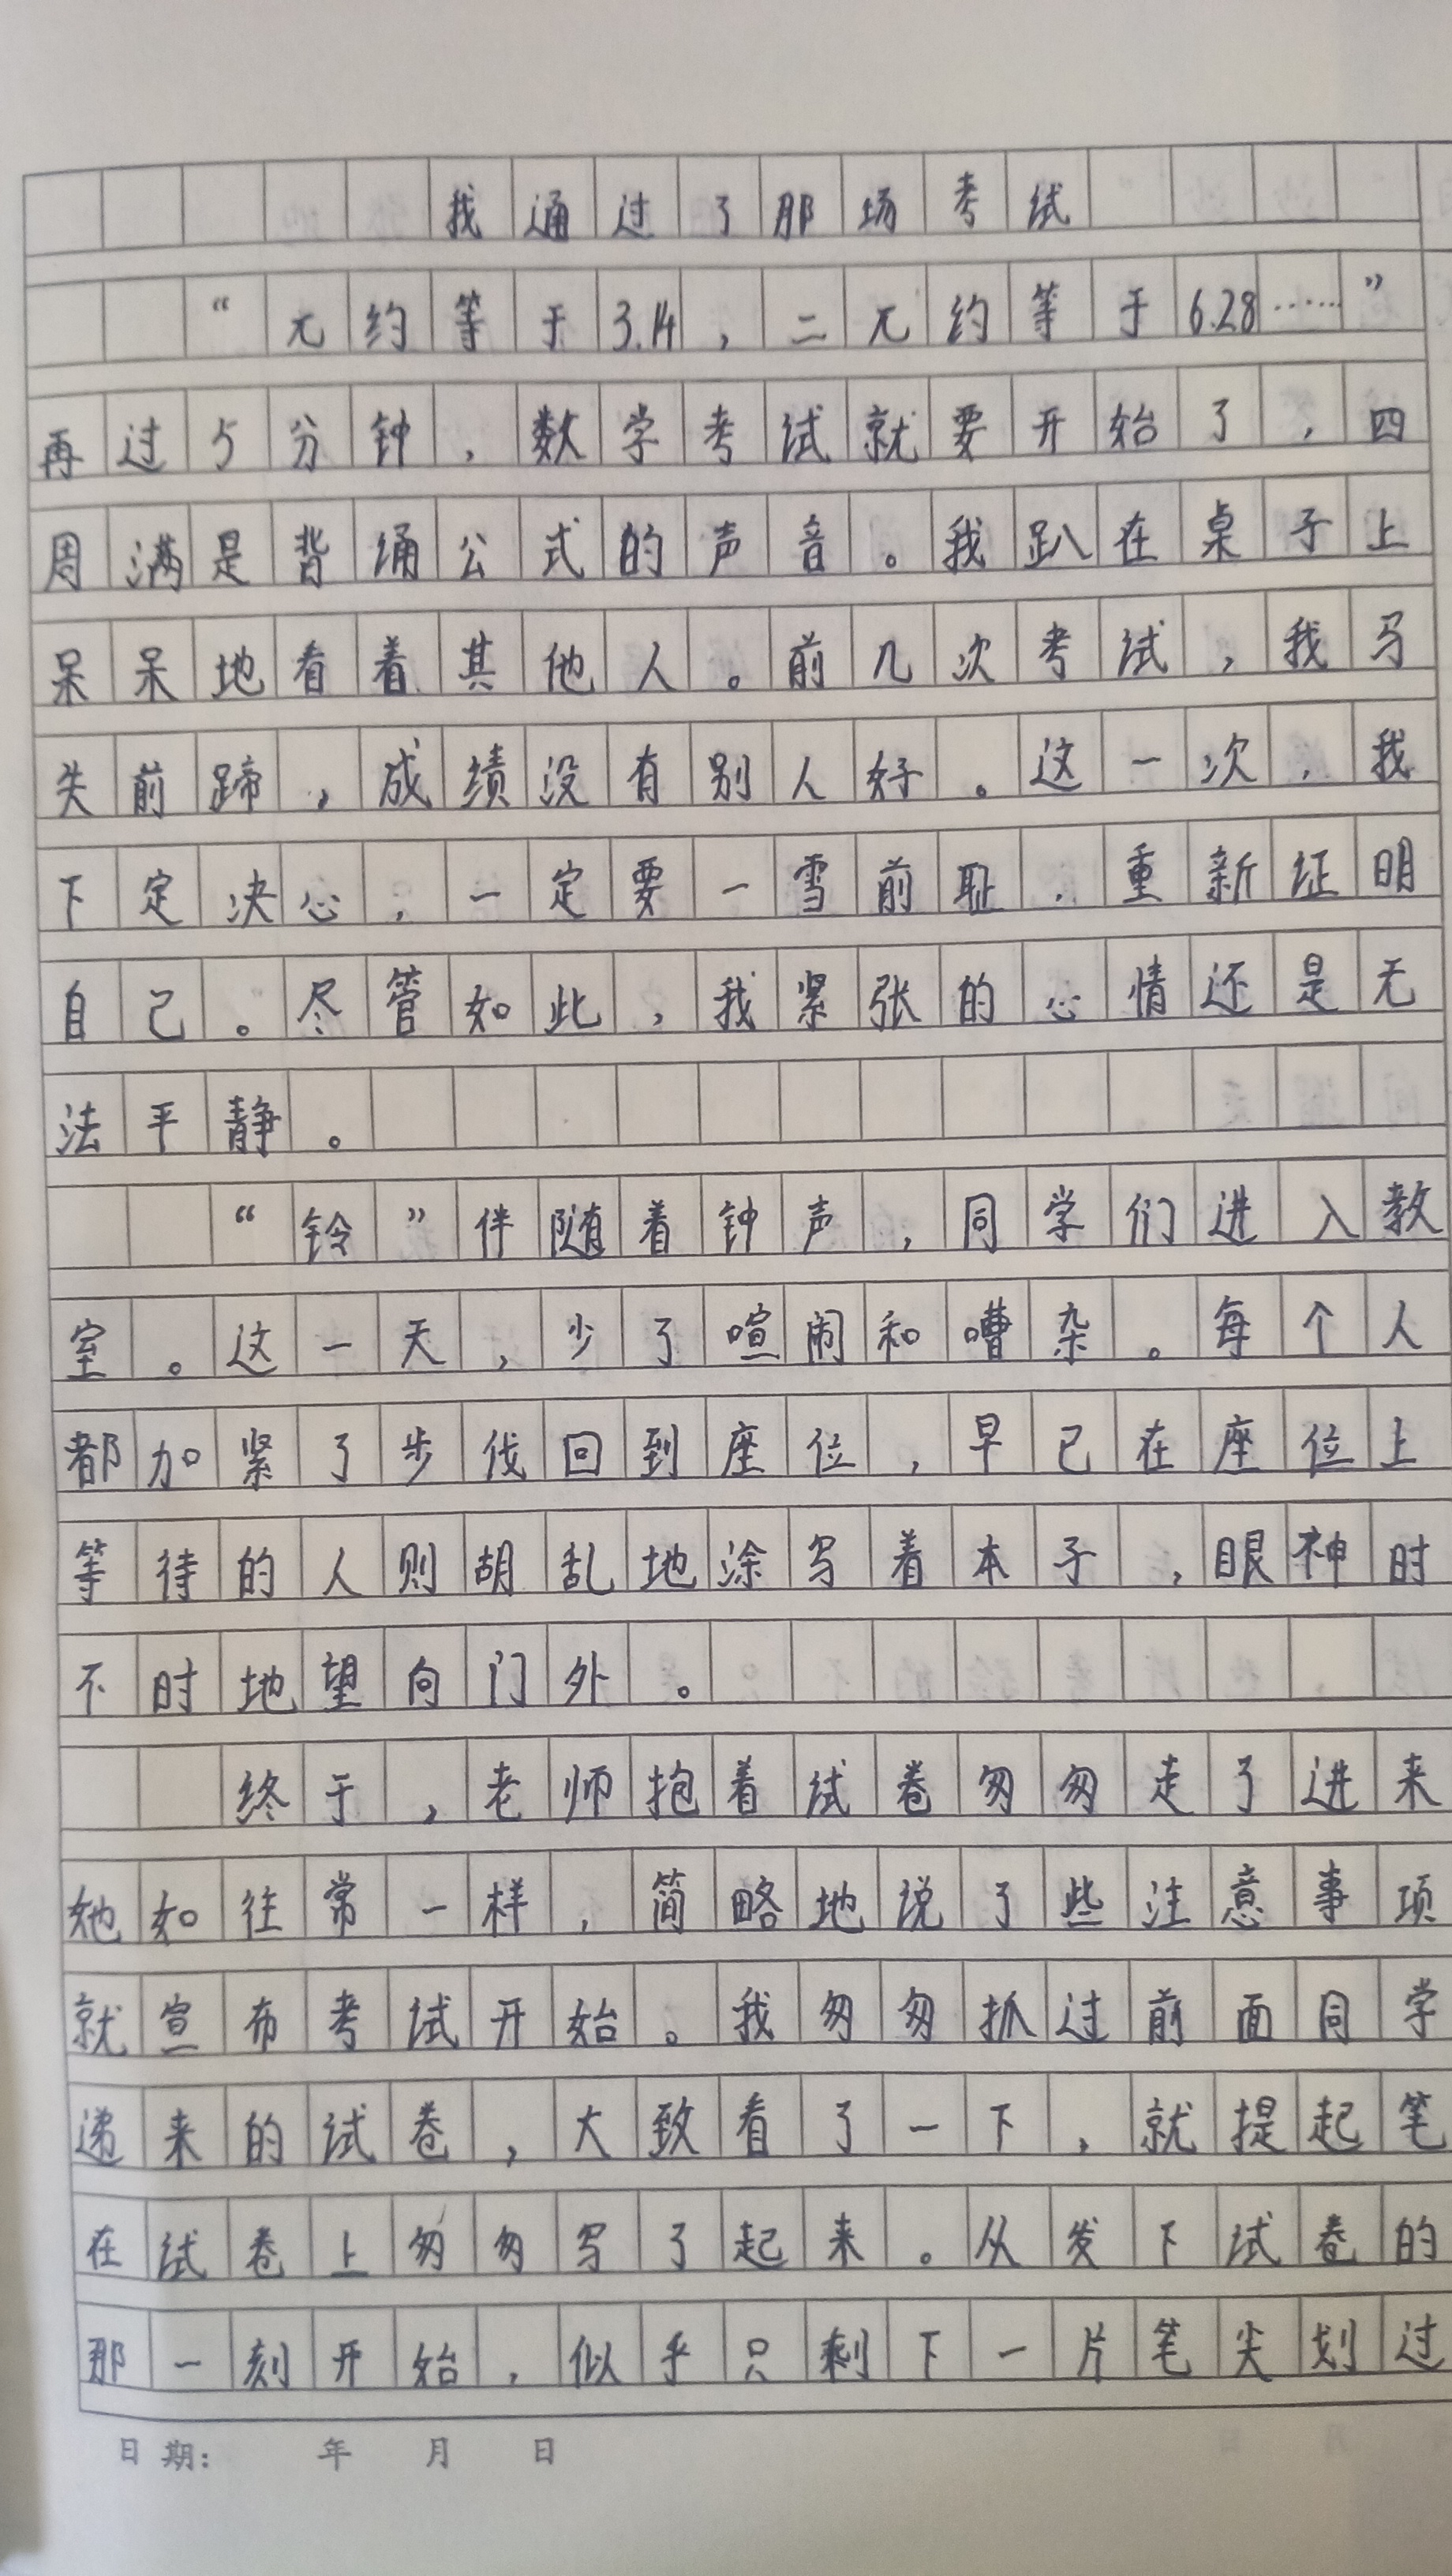 我通过了那场考试
“π约等于3.14，二π约等于6.28……”
再过5分钟，数学考试就要开始了，四
周满是背诵公式的声音。我趴在桌子上
呆呆地看着其他人。前几次考试，我马
失前蹄，成绩没有别人好。这一次，我
下定决心，一定要一雪前耻，重新证明
自己。尽管如此，我紧张的心情还是无
法平静。
“铃”伴随着钟声，同学们进入教
室。这一天，少了喧闹和嘈杂。每个人
都加紧了步伐回到座位，早已在座位上
等待的人则胡乱地涂写着本子，眼神时
不时地望向门外。
终于，老师抱着试卷匆匆走了进来
她如往常一样，简略地说了些注意事项
就宣布考试开始。我匆匆抓过前面同学
递来的试卷，大致看了一下，就提起笔
在试卷上匆匆写了起来。从发下试卷的
那一刻开始，似乎只剩下一片笔尖划过
日期： 年 月 日